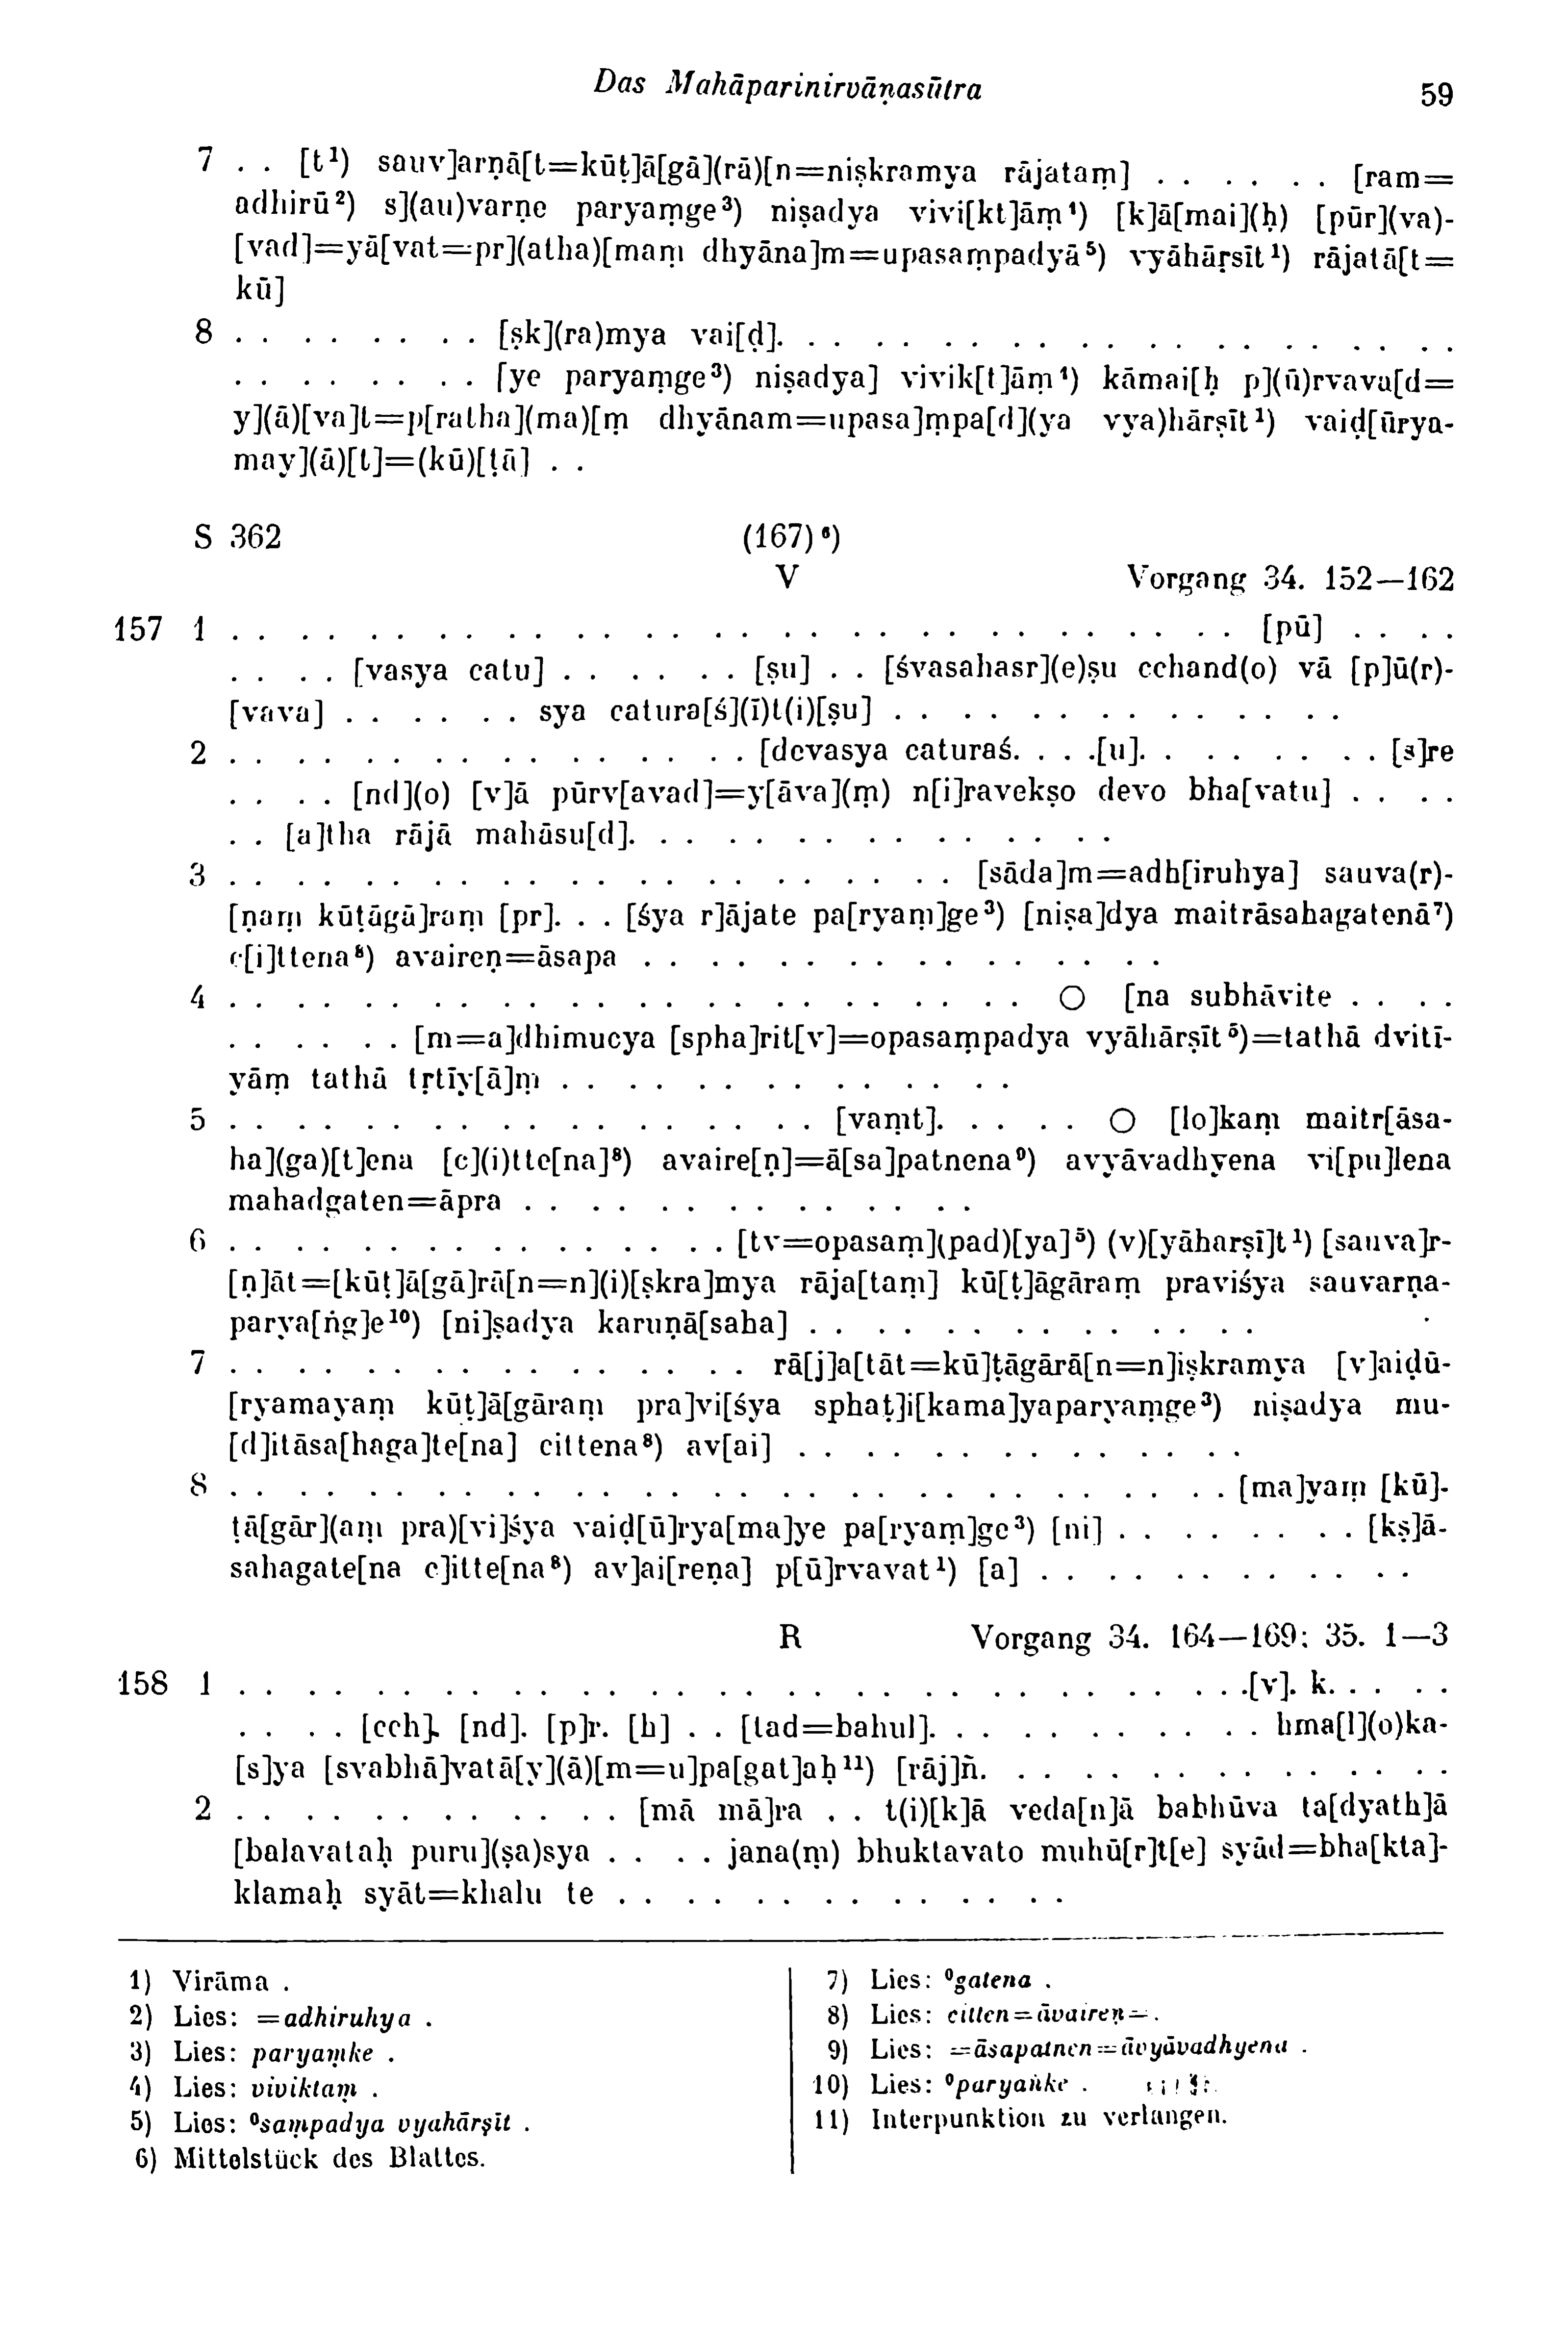 Das Mahāparinirvāṇasūtra 59
7 . . [t¹) sauv]arṇā[t=kūṭ]ā[gā](rā)[n=niṣkramya rājataṃ] . . . . . . [ram=
adhirū²) s](au)varṇe paryaṃge³) niṣadya vivi[kt]āṃ⁴) [k]ā[mai](ḥ) [pūr](va)-
[vad]=yā[vat=pr](atha)[maṃ dhyāna]m=upasaṃpadyā⁵) vyāhārṣīt¹) rājatā[t=
kū]
8 . . . . . . . . [ṣk](ra)mya vai[ḍ]. . . . . . . . . . . . . . . . . . . .
. . . . . . . . [ye paryaṃge³) niṣadya] vivik[t]āṃ⁴) kāmai[ḥ p](ū)rvava[d=
y](ā)[va]t=p[ratha](ma)[ṃ dhyānam=upasa]ṃpa[d](ya vya)hārṣīt¹) vaiḍ[ūrya-
may](ā)[t]=(kū)[ṭā] . .
S 362 (167)⁶)
V Vorgang 34. 152—162
157 1 . . . . . . . . . . . . . . . . . . . . . . . . . . . . . . [pū] . . . .
. . . . [vasya catu] . . . . . . [ṣu] . . [śvasahasr](e)ṣu cchand(o) vā [p]ū(r)-
[vava] . . . . . . sya catura[ś](ī)t(i)[ṣu] . . . . . . . . . . . . . .
2 . . . . . . . . . . . . . . . . [devasya caturaś. . . .[u]. . . . . . . . [s]re
. . . . [nd](o) [v]ā pūrv[avad]=y[āva](ṃ) n[i]ravekṣo devo bha[vatu] . . . .
. . [a]tha rājā mahāsu[d]. . . . . . . . . . . . . . .
3 . . . . . . . . . . . . . . . . . . . . . . [sāda]m=adh[iruhya] sauva(r)-
[ṇaṃ kūṭāgā]raṃ [pr]. . . [śya r]ājate pa[ryaṃ]ge³) [niṣa]dya maitrāsahagatenā⁷)
c[i]ttena⁸) avaireṇ=āsapa . . . . . . . . . . . . . . . .
4 . . . . . . . . . . . . . . . . . . . . . . . . ○ [na subhāvite . . . .
. . . . . . [m=a]dhimucya [spha]rit[v]=opasaṃpadya vyāhārṣīt⁵)=tathā dvitī-
yāṃ tathā tṛtīy[ā]ṃ . . . . . . . . . . . . . .
5 . . . . . . . . . . . . . . . . . . [vaṃt]. . . . . ○ [lo]kaṃ maitr[āsa-
ha](ga)[t]ena [c](i)tte[na]⁸) avaire[ṇ]=ā[sa]patnena⁹) avyāvadhyena vi[pu]lena
mahadgaten=āpra . . . . . . . . . . . . . .
6 . . . . . . . . . . . . . . . [tv=opasaṃ](pad)[ya]⁵) (v)[yāharṣī]t¹) [sauva]r-
[ṇ]āt=[kūṭ]ā[gā]rā[n=n](i)[ṣkra]mya rāja[taṃ] kū[ṭ]āgāraṃ praviśya sauvarṇa-
parya[ṅg]e¹⁰) [ni]ṣadya karuṇā[saha] . . . . . . . . . . . . . .
7 . . . . . . . . . . . . . . . . rā[j]a[tāt=kū]ṭāgārā[n=n]iṣkramya [v]aiḍū-
[ryamayaṃ kūṭ]ā[gāraṃ pra]vi[śya sphaṭ]i[kama]yaparyaṃge³) niṣadya mu-
[d]itāsa[haga]te[na] cittena⁸) av[ai] . . . . . . . . . . . . . .
8 . . . . . . . . . . . . . . . . . . . . . . . . . . . . . . [ma]yaṃ [kū]-
ṭā[gār](aṃ pra)[vi]śya vaiḍ[ū]rya[ma]ye pa[ryaṃ]ge³) [ni] . . . . . . . . [kṣ]ā-
sahagate[na c]itte[na⁸) av]ai[reṇa] p[ū]rvavat¹) [a] . . . . . . . . . . . .
R Vorgang 34. 164—169; 35. 1—3
158 1 . . . . . . . . . . . . . . . . . . . . . . . . . . . . . . .[v]. k. . . . .
. . . . [cch]. [nd]. [p]r. [h] . . [tad=bahul]. . . . . . . . . . . hma[l](o)ka-
[s]ya [svabhā]vatā[y](ā)[m=u]pa[gat]aḥ¹¹) [rāj]ñ. . . . . . . . . . . . . . .
2 . . . . . . . . . . . . [mā mā]ra . . t(i)[k]ā veda[n]ā babhūva ta[dyath]ā
[balavataḥ puru](ṣa)sya . . . . jana(ṃ) bhuktavato muhū[r]t[e] syād=bha[kta]-
klamaḥ syāt=khalu te . . . . . . . . . . . . . .
1) Virāma .
2) Lies: =adhiruhya .
3) Lies: paryaṃke .
4) Lies: viviktaṃ .
5) Lies: ⁰saṃpadya vyahārṣīt .
6) Mittelstück des Blattes.
7) Lies: ⁰gatena .
8) Lies: citten=āvaireṇ=.
9) Lies: =āsapatnen=āvyāvadhyena .
10) Lies: ⁰paryaṅke .
11) Interpunktion zu verlangen.